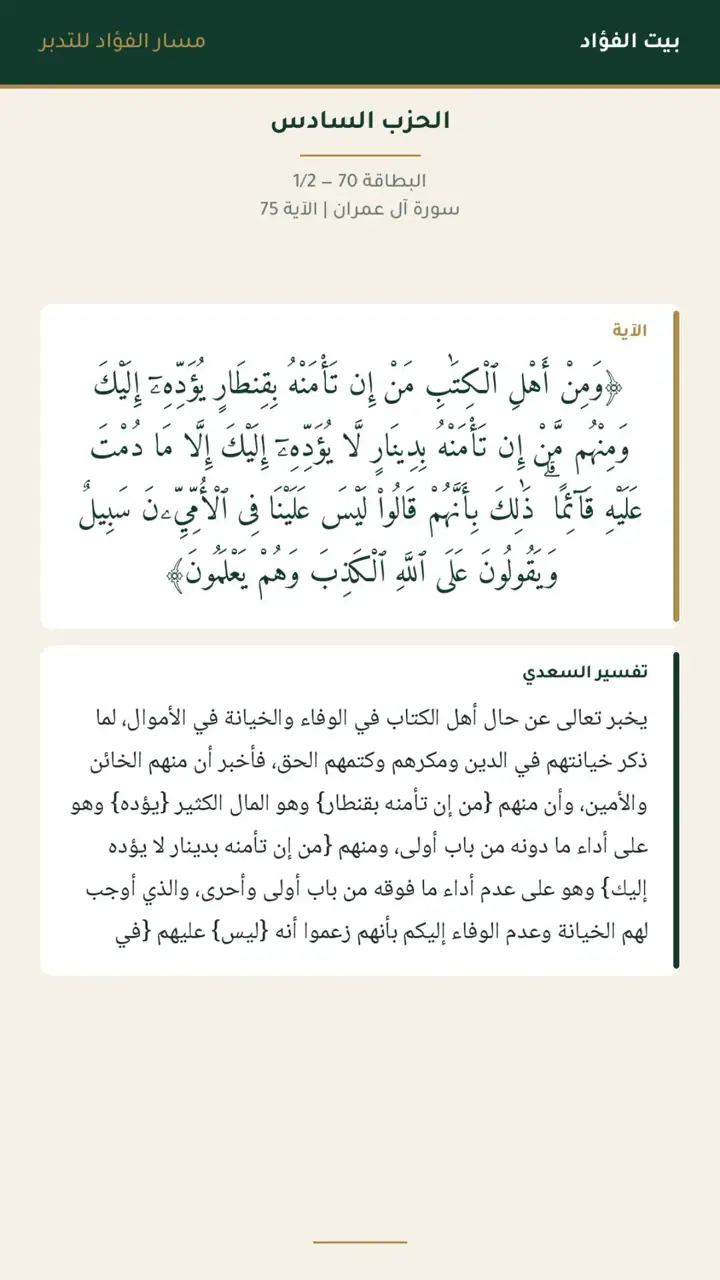 بيت الفؤاد
مسار الفؤاد للتدبر
الحزب السادس
البطاقة 70 – 1/2
سورة آل عمران | الآية 75
الآية
﴿وَمِنْ أَهْلِ ٱلْكِتَٰبِ مَنْ إِن تَأْمَنْهُ بِقِنطَارٍ يُؤَدِّهِۦٓ إِلَيْكَ
وَمِنْهُم مَّنْ إِن تَأْمَنْهُ بِدِينَارٍ لَّا يُؤَدِّهِۦٓ إِلَيْكَ إِلَّا مَا دُمْتَ
عَلَيْهِ قَآئِمًاۗ ذَٰلِكَ بِأَنَّهُمْ قَالُوا۟ لَيْسَ عَلَيْنَا فِى ٱلْأُمِّيِّـۧنَ سَبِيلٌ
وَيَقُولُونَ عَلَى ٱللَّهِ ٱلْكَذِبَ وَهُمْ يَعْلَمُونَ﴾
تفسير السعدي
يخبر تعالى عن حال أهل الكتاب في الوفاء والخيانة في الأموال، لما
ذكر خيانتهم في الدين ومكرهم وكتمهم الحق، فأخبر أن منهم الخائن
والأمين، وأن منهم {من إن تأمنه بقنطار} وهو المال الكثير {يؤده} وهو
على أداء ما دونه من باب أولى، ومنهم {من إن تأمنه بدينار لا يؤده
إليك} وهو على عدم أداء ما فوقه من باب أولى وأحرى، والذي أوجب
لهم الخيانة وعدم الوفاء إليكم بأنهم زعموا أنه {ليس} عليهم {في